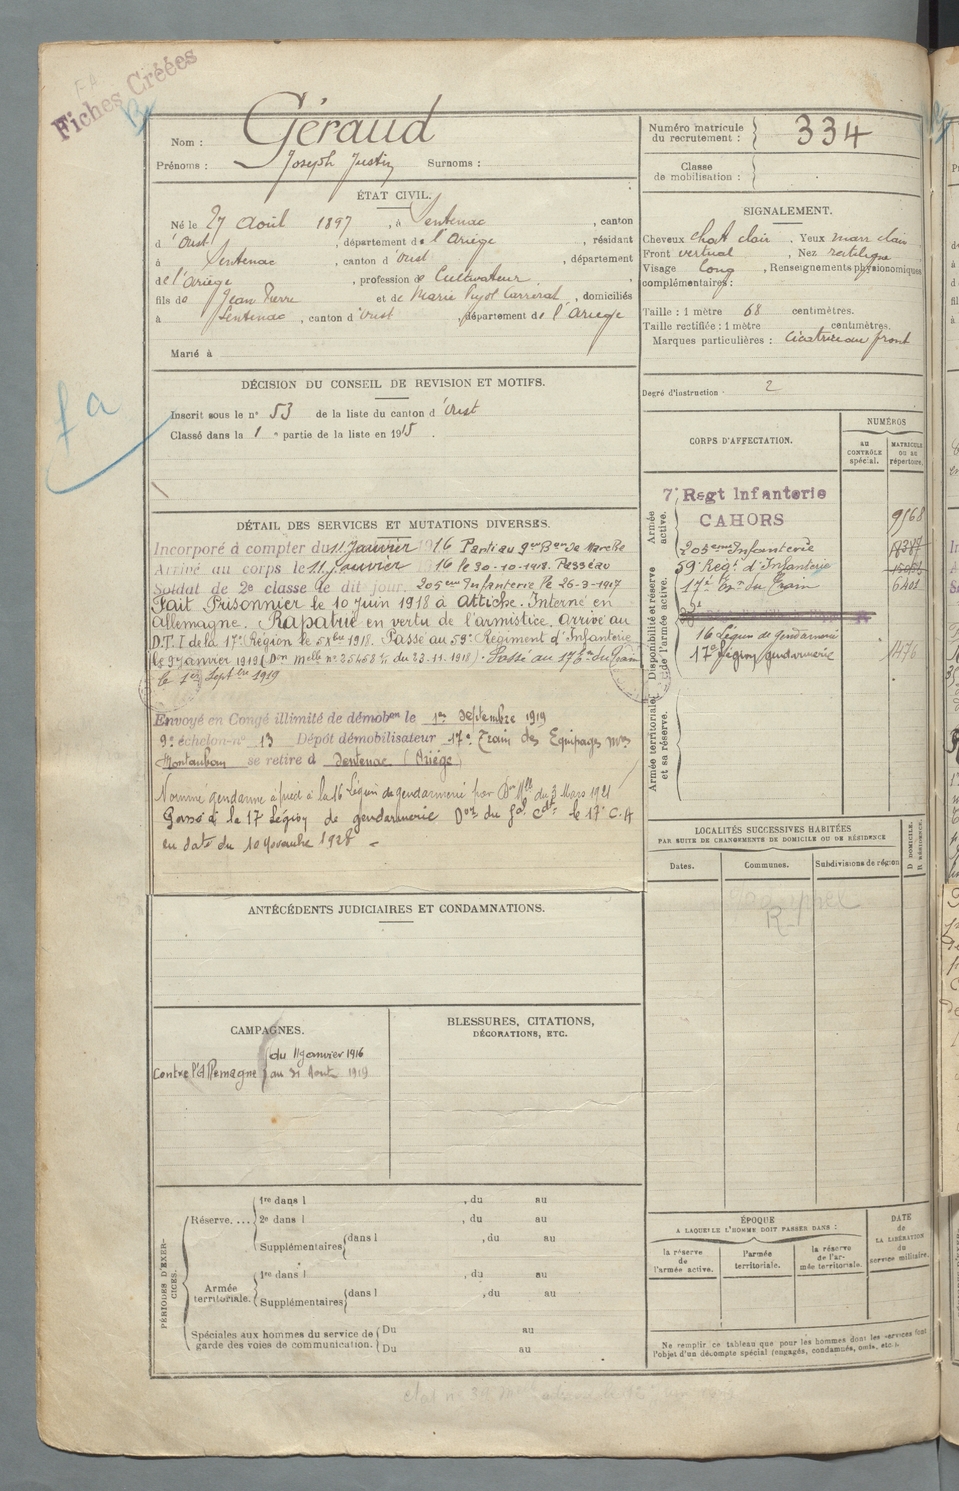 Fiches Créées
Nom : Géraud
Prénoms : Joseph Justin Surnoms :
Numéro matricule du recrutement : 334
Classe de mobilisation :
ÉTAT CIVIL.
Né le 27 Août 1897, à Sentenac, canton
d'Oust, département de l'Ariège, résidant
à Sentenac, canton d'Oust, département
de l'Ariège, profession de Cultivateur
fils de Jean Pierre et de Marie Pujol Carrérat, domiciliés
à Sentenac, canton d'Oust, département de l'Ariège
Marié à
SIGNALEMENT.
Cheveux chat clair. Yeux marr clair
Front vertical, Nez rectiligne
Visage long, Renseignements physionomiques
complémentaires :
Taille : 1 mètre 68 centimètres.
Taille rectifiée : 1 mètre centimètres.
Marques particulières : Cicatrice au front
Degré d'instruction : 2
DÉCISION DU CONSEIL DE REVISION ET MOTIFS.
Inscrit sous le n° 53 de la liste du canton d'Oust
Classé dans la 1e partie de la liste en 1915.
fa
DÉTAIL DES SERVICES ET MUTATIONS DIVERSES.
Incorporé à compter du 11 Janvier 1916 Parti au 9me Bon de Marche
Arrivé au corps le 11 Janvier 1916 le 30-10-1918. Passé au
Soldat de 2e classe le dit jour. 205eme Infanterie le 26-3-1917
Fait Prisonnier le 10 Juin 1918 à Attiche. Interné en
Allemagne. Rapatrié en vertu de l'armistice. Arrivé au
D.T.I de la 17e Région le 5 Xbre 1918. Passé au 59e Régiment d'Infanterie
le 9 Janvier 1919 (Don Melle n° 25468 1/1 du 23.11.1918). Passé au 17e Eon du Train
le 1er Septbre 1919
Envoyé en Congé illimité de démobon le 1er Septembre 1919
9e échelon n° 13 Dépôt démobilisateur 17e Train des Equipages mres
Montauban se retire à Sentenac (Ariège)
Nommé gendarme à pied à la 16 Légion de gendarmerie par Don Mlle du 3 Mars 1921
Passé à la 17 Légion de gendarmerie Don du Gal Cdt le 17e C.A
en date du 10 Novembre 1928
CORPS D'AFFECTATION.
NUMÉROS
AU CONTRÔLE spécial.
MATRICULE OU AU répertoire.
Armée active.
7e Regt Infanterie
CAHORS 9568
205eme Infanterie
59e Régt d'Infanterie
17e Eon du Train 6401
Disponibilité et réserve de l'armée active.
16 Légion de gendarmerie
17e Légion gendarmerie 1476
Armée territoriale et sa réserve.
LOCALITÉS SUCCESSIVES HABITÉES
PAR SUITE DE CHANGEMENTS DE DOMICILE OU DE RÉSIDENCE
Dates. Communes. Subdivisions de région
D DOMICILE. R RÉSIDENCE.
ANTÉCÉDENTS JUDICIAIRES ET CONDAMNATIONS.
CAMPAGNES.
Contre l'Allemagne du 11 Janvier 1916
au 31 Août 1919
BLESSURES, CITATIONS,
DÉCORATIONS, ETC.
PÉRIODES D'EXERCICES.
Réserve.... 1re dans l , du au
2e dans l , du au
Supplémentaires dans l , du au
Armée territoriale. 1re dans l , du au
Supplémentaires dans l , du au
Spéciales aux hommes du service de garde des voies de communication. Du au
Du au
ÉPOQUE
A LAQUELLE L'HOMME DOIT PASSER DANS :
la réserve de l'armée active.
l'armée territoriale.
la réserve de l'armée territoriale.
DATE de LA LIBÉRATION du service militaire.
Ne remplir ce tableau que pour les hommes dont les services font
l'objet d'un décompte spécial (engagés, condamnés, omis, etc.).